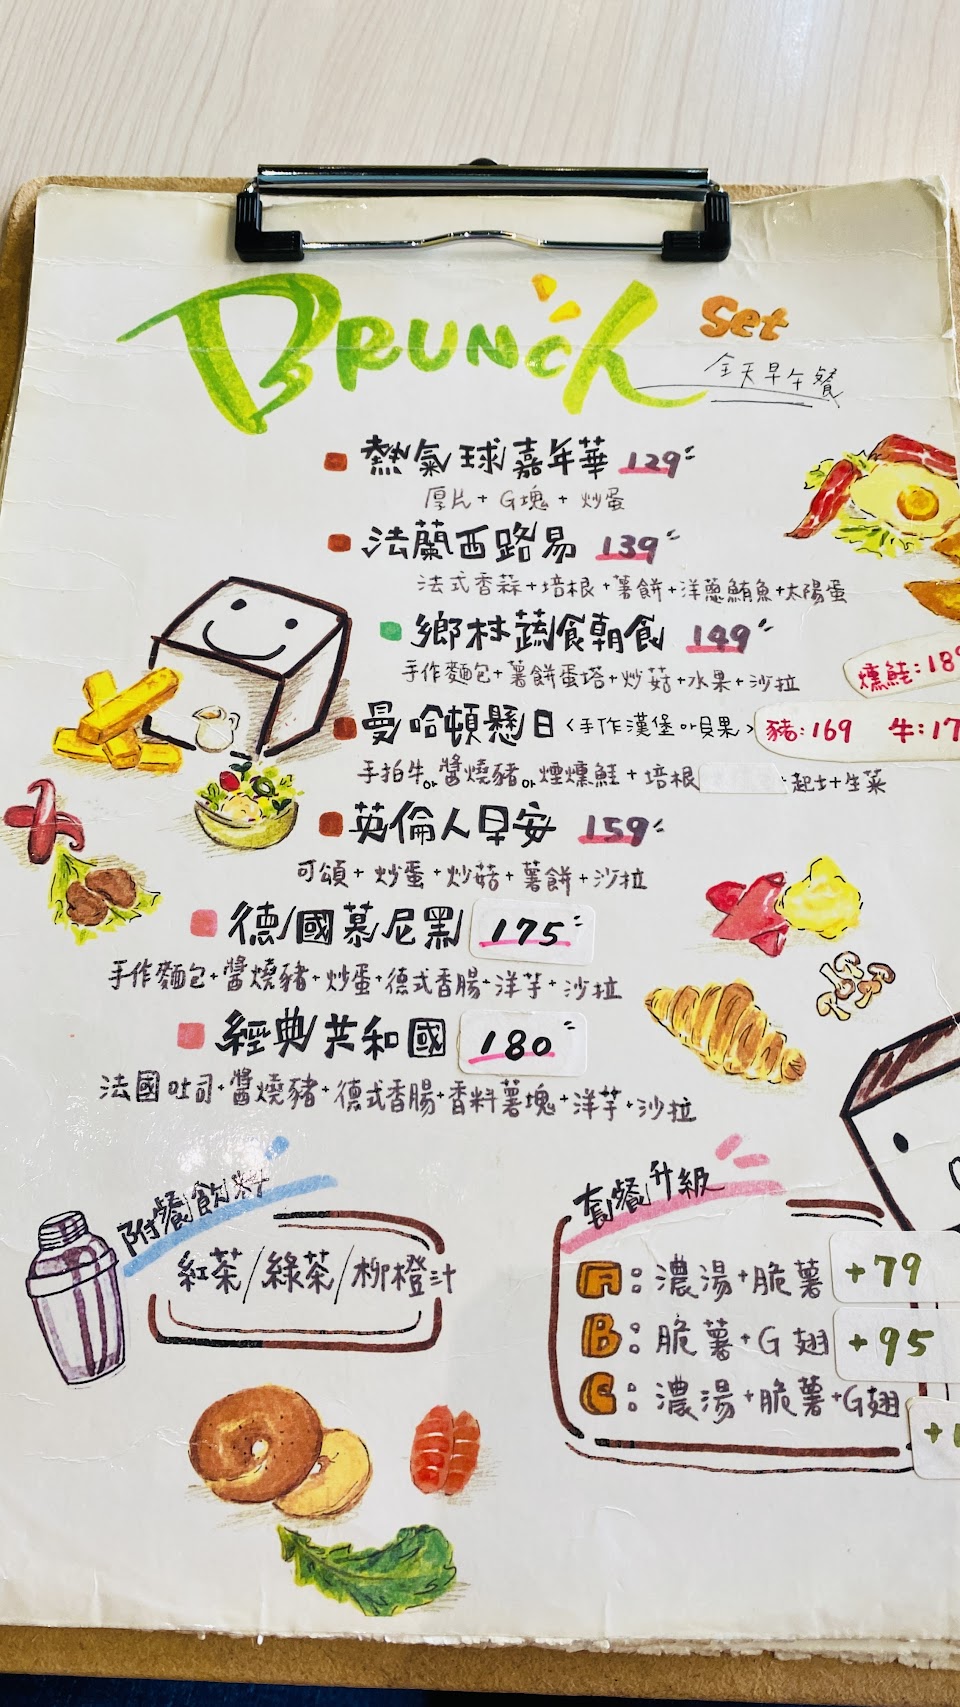 BRUNCH Set
全天早午餐
熱氣球嘉年華 129
厚片 + G塊 + 炒蛋
法蘭西路易 139
法式香蒜+培根+薯餅+洋蔥鮪魚+太陽蛋
鄉村蔬食朝食 149
手作麵包+薯餅蛋塔+炒菇+水果+沙拉
燻鮭:189
曼哈頓懸日<手作漢堡or貝果> 豬:169 牛:17
手拍牛or醬燒豬or煙燻鮭+培根 起士+生菜
英倫人早安 159
可頌+炒蛋+炒菇+薯餅+沙拉
德國慕尼黑 175
手作麵包+醬燒豬+炒蛋+德式香腸+洋芋+沙拉
經典共和國 180
法國吐司+醬燒豬+德式香腸+香料薯塊+洋芋+沙拉
附餐飲料
紅茶/綠茶/柳橙汁
套餐升級
A:濃湯+脆薯 +79
B:脆薯+G翅 +95
C:濃湯+脆薯+G翅